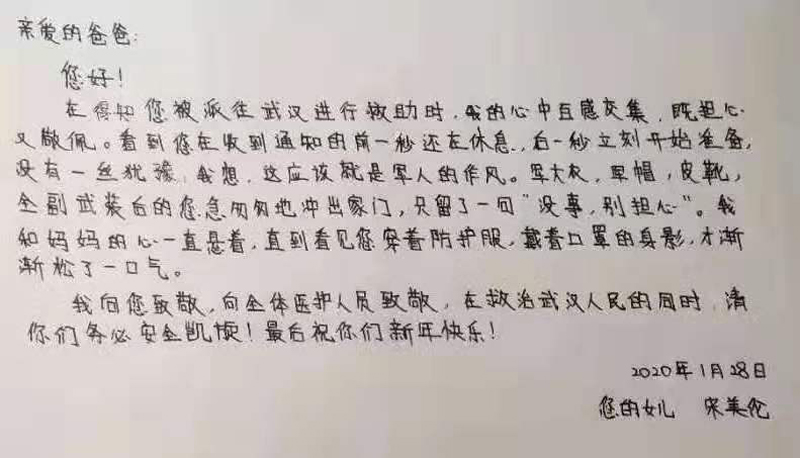 亲爱的爸爸:
您好!
在得知您被派往武汉进行救助时,我的心中百感交集,既担心
又敬佩。看到您在收到通知的前一秒还在休息,后一秒立刻开始准备,
没有一丝犹豫,我想,这应该就是军人的作风。军大衣,军帽,皮靴,
全副武装后的您急匆匆地冲出家门,只留了一句“没事,别担心”。我
和妈妈的心一直悬着,直到看见您穿着防护服,戴着口罩的身影,才渐
渐松了一口气。
我向您致敬,向全体医护人员致敬,在救治武汉人民的同时,请
你们务必安全凯旋!最后祝你们新年快乐!
2020年1月28日
您的女儿 宋美伦